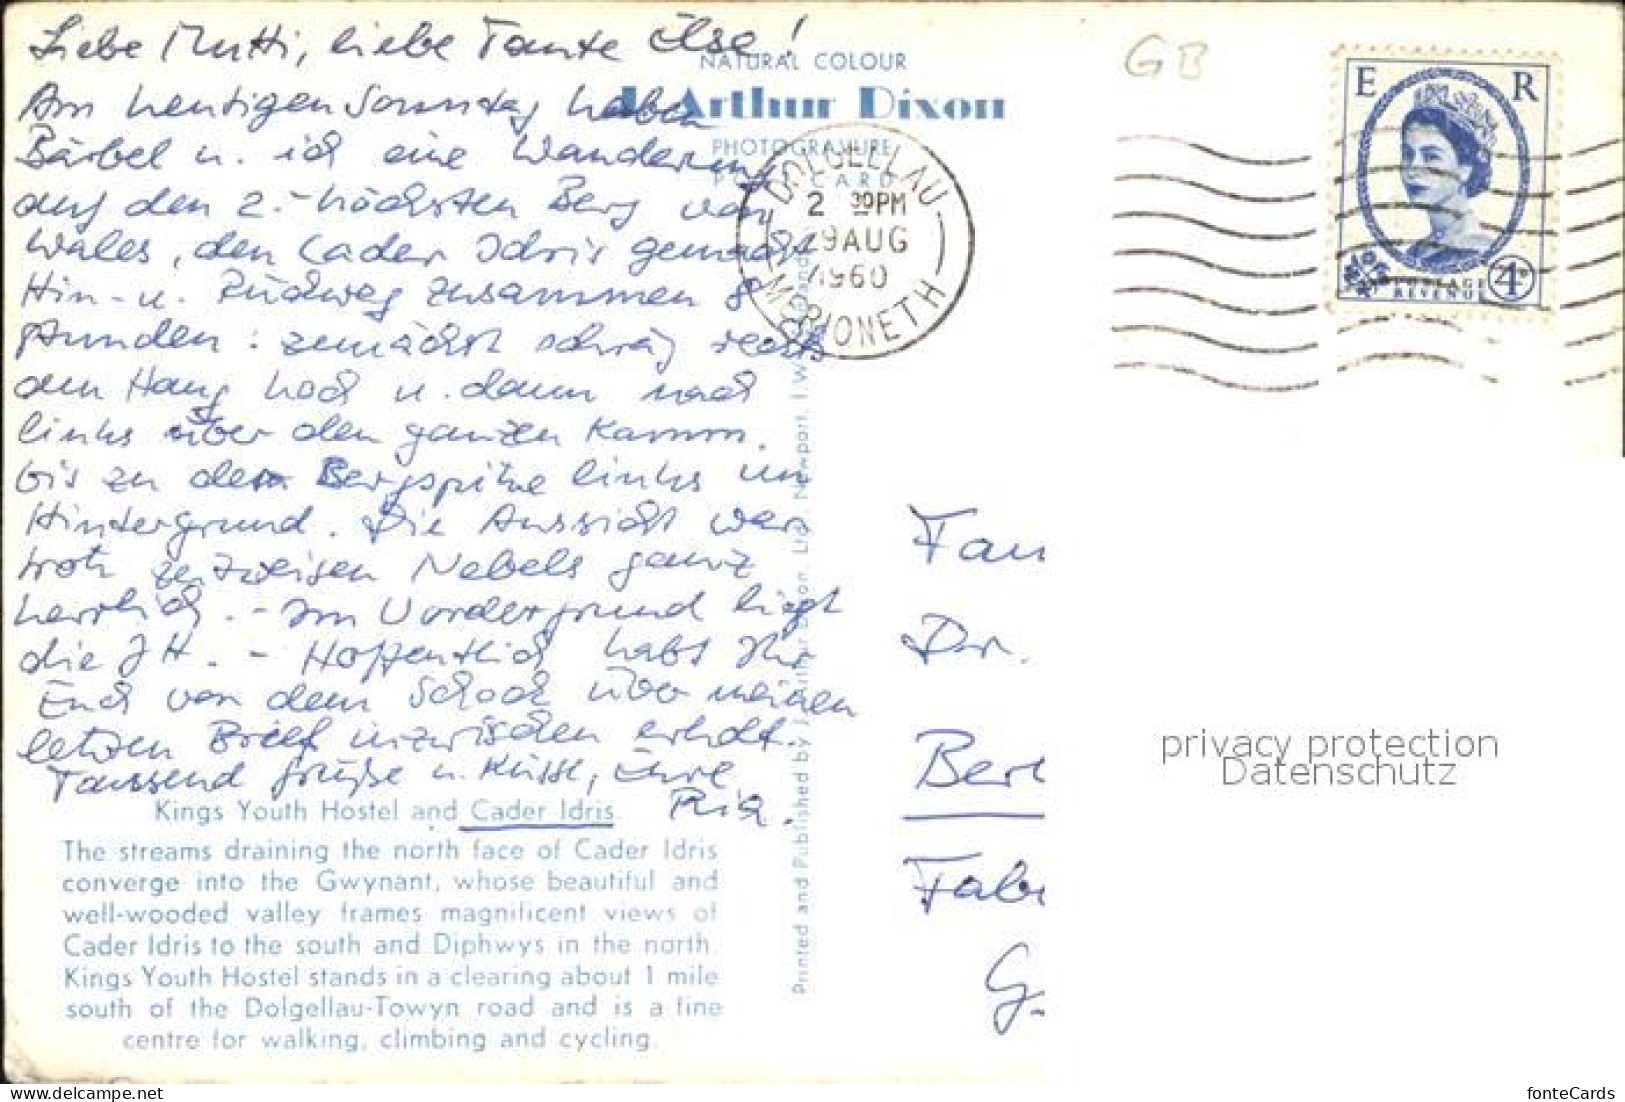 Liebe Mutti, liebe Tante Ilse!
Am heutigen Sonntag haben
Bärbel u. ich eine Wanderung
auf den 2.-höchsten Berg von
Wales, den Cader Idris gemacht
Hin- u. Rückweg zusammen 8
Stunden: zunächst schräg rechts
den Hang hoch u. dann nach
links über den ganzen Kamm
bis zu der Bergspitze links im
Hintergrund. Die Aussicht war
trotz zeitweisen Nebels ganz
herrlich. - Im Vordergrund liegt
die JH. - Hoffentlich habt Ihr
Euch von dem Schock über meinen
letzten Brief inzwischen erholt.
Tausend Grüße u. Küsse, Eure
Ria.
Kings Youth Hostel and Cader Idris
The streams draining the north face of Cader Idris
converge into the Gwynant, whose beautiful and
well-wooded valley frames magnificent views of
Cader Idris to the south and Diphwys in the north.
Kings Youth Hostel stands in a clearing about 1 mile
south of the Dolgellau-Towyn road and is a fine
centre for walking, climbing and cycling.
NATURAL COLOUR
J Arthur Dixon
PHOTOGRAVURE
CARD
Printed and Published by J. Arthur Dixon, Ltd., Newport, I.W.
DOLGELLAU
2 30PM
29 AUG
1960
MERIONETH
GB
E R
POSTAGE
REVENUE
4D
Dr.
G.
privacy protection
Datenschutz
fonteCards